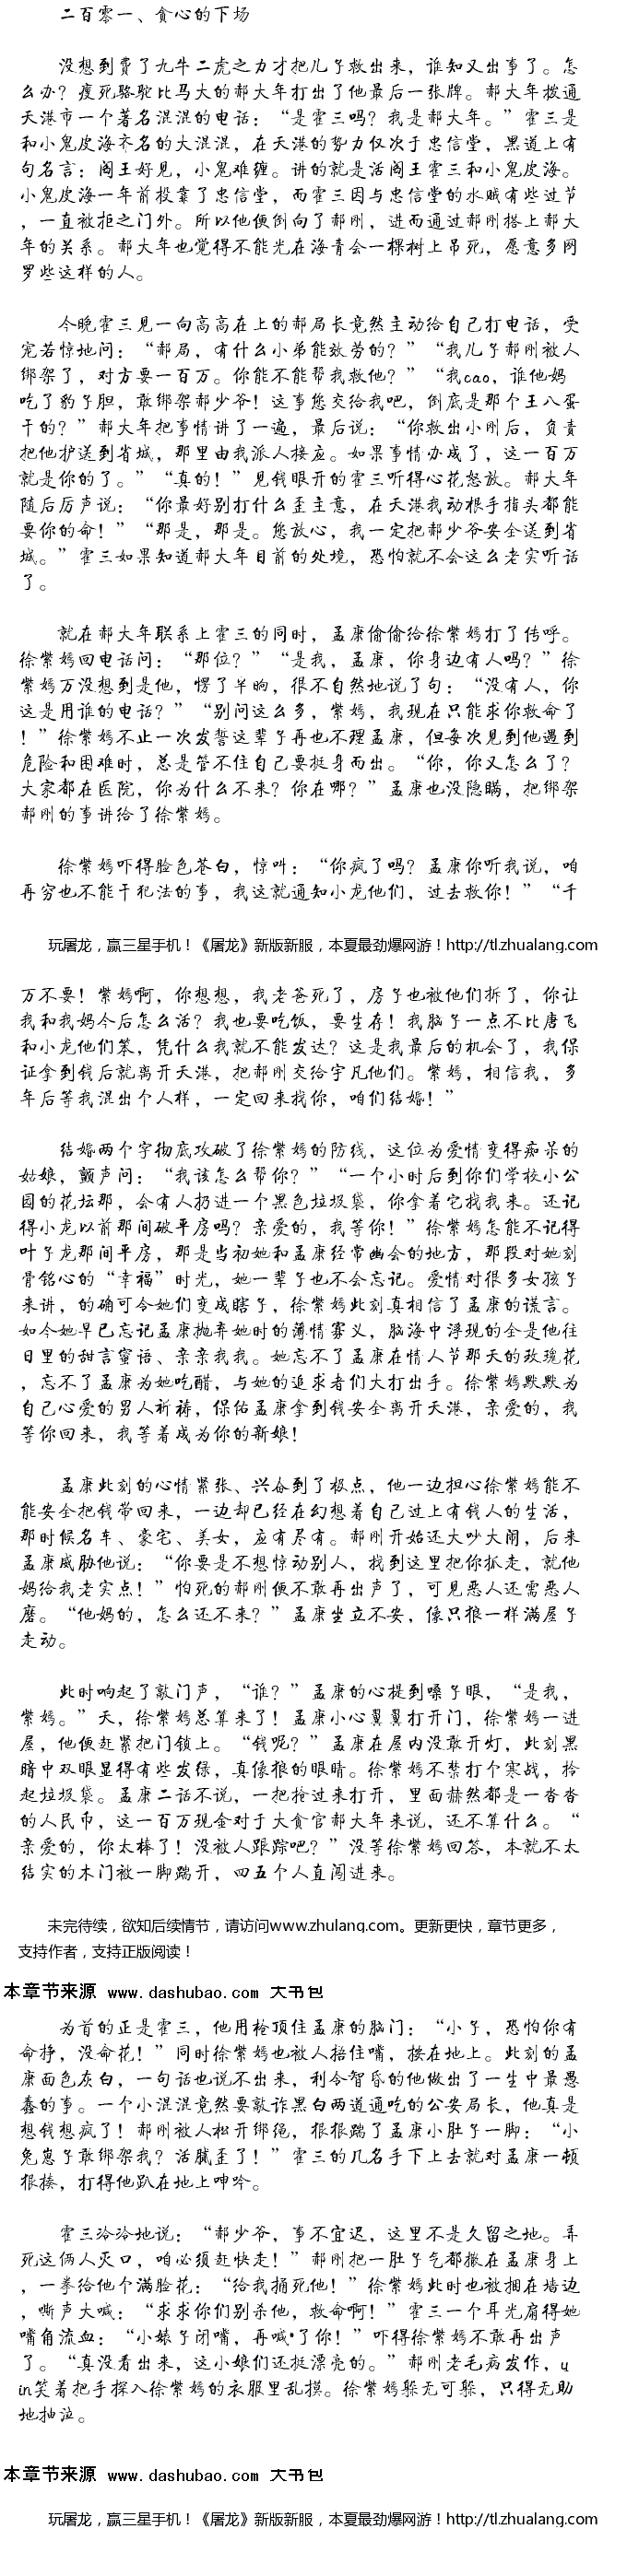 二百零一、贪心的下场
没想到费了九牛二虎之力才把儿子救出来，谁知又出事了。怎
么办？瘦死骆驼比马大的郝大年打出了他最后一张牌。郝大年拨通
天港市一个著名混混的电话：“是霍三吗？我是郝大年。”霍三是
和小鬼皮海齐名的大混混，在天港的势力仅次于忠信堂，黑道上有
句名言：阎王好见，小鬼难缠。讲的就是活阎王霍三和小鬼皮海。
小鬼皮海一年前投靠了忠信堂，而霍三因与忠信堂的水贼有些过节
，一直被拒之门外。所以他便倒向了郝刚，进而通过郝刚搭上郝大
年的关系。郝大年也觉得不能光在海青会一棵树上吊死，愿意多网
罗些这样的人。
今晚霍三见一向高高在上的郝局长竟然主动给自己打电话，受
宠若惊地问：“郝局，有什么小弟能效劳的？”“我儿子郝刚被人
绑架了，对方要一百万。你能不能帮我救他？”“我cao，谁他妈
吃了豹子胆，敢绑架郝少爷！这事您交给我吧，倒底是那个王八蛋
干的？”郝大年把事情讲了一遍，最后说：“你救出小刚后，负责
把他护送到省城，那里由我派人接应。如果事情办成了，这一百万
就是你的了。”“真的！”见钱眼开的霍三听得心花怒放。郝大年
随后厉声说：“你最好别打什么歪主意，在天港我动根手指头都能
要你的命！”“那是，那是。您放心，我一定把郝少爷安全送到省
城。”霍三如果知道郝大年目前的处境，恐怕就不会这么老实听话
了。
就在郝大年联系上霍三的同时，孟康偷偷给徐紫嫣打了传呼。
徐紫嫣回电话问：“那位？”“是我，孟康，你身边有人吗？”徐
紫嫣万没想到是他，愣了半晌，很不自然地说了句：“没有人，你
这是用谁的电话？”“别问这么多，紫嫣，我现在只能求你救命了
！”徐紫嫣不止一次发誓这辈子再也不理孟康，但每次见到他遇到
危险和困难时，总是管不住自己要挺身而出。“你，你又怎么了？
大家都在医院，你为什么不来？你在哪？”孟康也没隐瞒，把绑架
郝刚的事讲给了徐紫嫣。
徐紫嫣吓得脸色苍白，惊叫：“你疯了吗？孟康你听我说，咱
再穷也不能干犯法的事，我这就通知小龙他们，过去救你！”“千
玩屠龙，赢三星手机！《屠龙》新版新服，本夏最劲爆网游！http://tl.zhualang.com
万不要！紫嫣啊，你想想，我老爸死了，房子也被他们拆了，你让
我和我妈今后怎么活？我也要吃饭，要生存！我脑子一点不比唐飞
和小龙他们笨，凭什么我就不能发达？这是我最后的机会了，我保
证拿到钱后就离开天港，把郝刚交给宇凡他们。紫嫣，相信我，多
年后等我混出个人样，一定回来找你，咱们结婚！”
结婚两个字彻底攻破了徐紫嫣的防线，这位为爱情变得痴呆的
姑娘，颤声问：“我该怎么帮你？”“一个小时后到你们学校小公
园的花坛那，会有人扔进一个黑色垃圾袋，你拿着它找我来。还记
得小龙以前那间破平房吗？亲爱的，我等你！”徐紫嫣怎能不记得
叶子龙那间平房，那是当初她和孟康经常幽会的地方，那段对她刻
骨铭心的“幸福”时光，她一辈子也不会忘记。爱情对很多女孩子
来讲，的确可令她们变成瞎子，徐紫嫣此刻真相信了孟康的谎言。
如今她早已忘记孟康抛弃她时的薄情寡义，脑海中浮现的全是他往
日里的甜言蜜语、亲亲我我。她忘不了孟康在情人节那天的玫瑰花
，忘不了孟康为她吃醋，与她的追求者们大打出手。徐紫嫣默默为
自己心爱的男人祈祷，保佑孟康拿到钱安全离开天港，亲爱的，我
等你回来，我等着成为你的新娘！
孟康此刻的心情紧张、兴奋到了极点，他一边担心徐紫嫣能不
能安全把钱带回来，一边却已经在幻想着自己过上有钱人的生活，
那时候名车、豪宅、美女，应有尽有。郝刚开始还大吵大闹，后来
孟康威胁他说：“你要是不想惊动别人，找到这里把你抓走，就他
妈给我老实点！”怕死的郝刚便不敢再出声了，可见恶人还需恶人
磨。“他妈的，怎么还不来？”孟康坐立不安，像只狼一样满屋子
走动。
此时响起了敲门声，“谁？”孟康的心提到嗓子眼，“是我，
紫嫣。”天，徐紫嫣总算来了！孟康小心翼翼打开门，徐紫嫣一进
屋，他便赶紧把门锁上。“钱呢？”孟康在屋内没敢开灯，此刻黑
暗中双眼显得有些发绿，真像狼的眼睛。徐紫嫣不禁打个寒战，拾
起垃圾袋。孟康二话不说，一把抢过来打开，里面赫然都是一沓沓
的人民币，这一百万现金对于大贪官郝大年来说，还不算什么。“
亲爱的，你太棒了！没被人跟踪吧？”没等徐紫嫣回答，本就不太
结实的木门被一脚踹开，四五个人直闯进来。
未完待续，欲知后续情节，请访问www.zhulang.com。更新更快，章节更多，
支持作者，支持正版阅读！
本章节来源 www.dashubao.com 大书包
为首的正是霍三，他用枪顶住孟康的脑门：“小子，恐怕你有
命挣，没命花！”同时徐紫嫣也被人掐住嘴，按在地上。此刻的孟
康面色灰白，一句话也说不出来，利令智昏的他做出了一生中最愚
蠢的事。一个小混混竟然要敲诈黑白两道通吃的公安局长，他真是
想钱想疯了！郝刚被人松开绑绳，狠狠踹了孟康小肚子一脚：“小
兔崽子敢绑架我？活腻歪了！”霍三的几名手下上去就对孟康一顿
狠揍，打得他趴在地上呻吟。
霍三冷冷地说：“郝少爷，事不宜迟，这里不是久留之地。弄
死这俩人灭口，咱必须赶快走！”郝刚把一肚子气都撒在孟康身上
，一拳给他个满脸花：“给我捅死他！”徐紫嫣此时也被拥在墙边
，嘶声大喊：“求求你们别杀他，救命啊！”霍三一个耳光扇得她
嘴角流血：“小婊子闭嘴，再喊·了你！”吓得徐紫嫣不敢再出声
了。“真没看出来，这小娘们还挺漂亮的。”郝刚老毛病发作，y
in笑着把手探入徐紫嫣的衣服里乱摸。徐紫嫣躲无可躲，只得无助
地抽泣。
本章节来源 www.dashubao.com 大书包
玩屠龙，赢三星手机！《屠龙》新版新服，本夏最劲爆网游！http://tl.zhualang.com